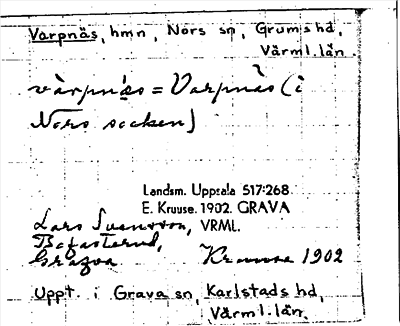 Varpnäs, hmn, Nors sn, Grums hd,
Värml. län.
= Varpnäs (i
Nors socken)
Landsm. Uppsala 517:268.
E. Kruuse. 1902. GRAVA
VRML.
Lars Svensson,
Kruuse 1902
Uppt. i Grava sn, Karlstads hd,
Värml. län.